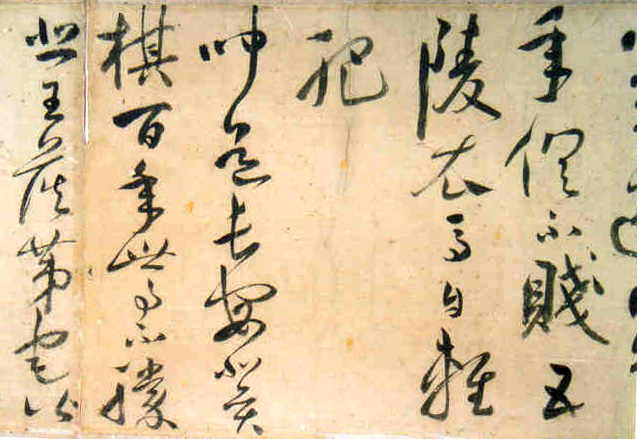 年不賤五
陵衣馬自輕
肥
聞道長安似奕
棋百年世事不勝
悲王侯第宅皆